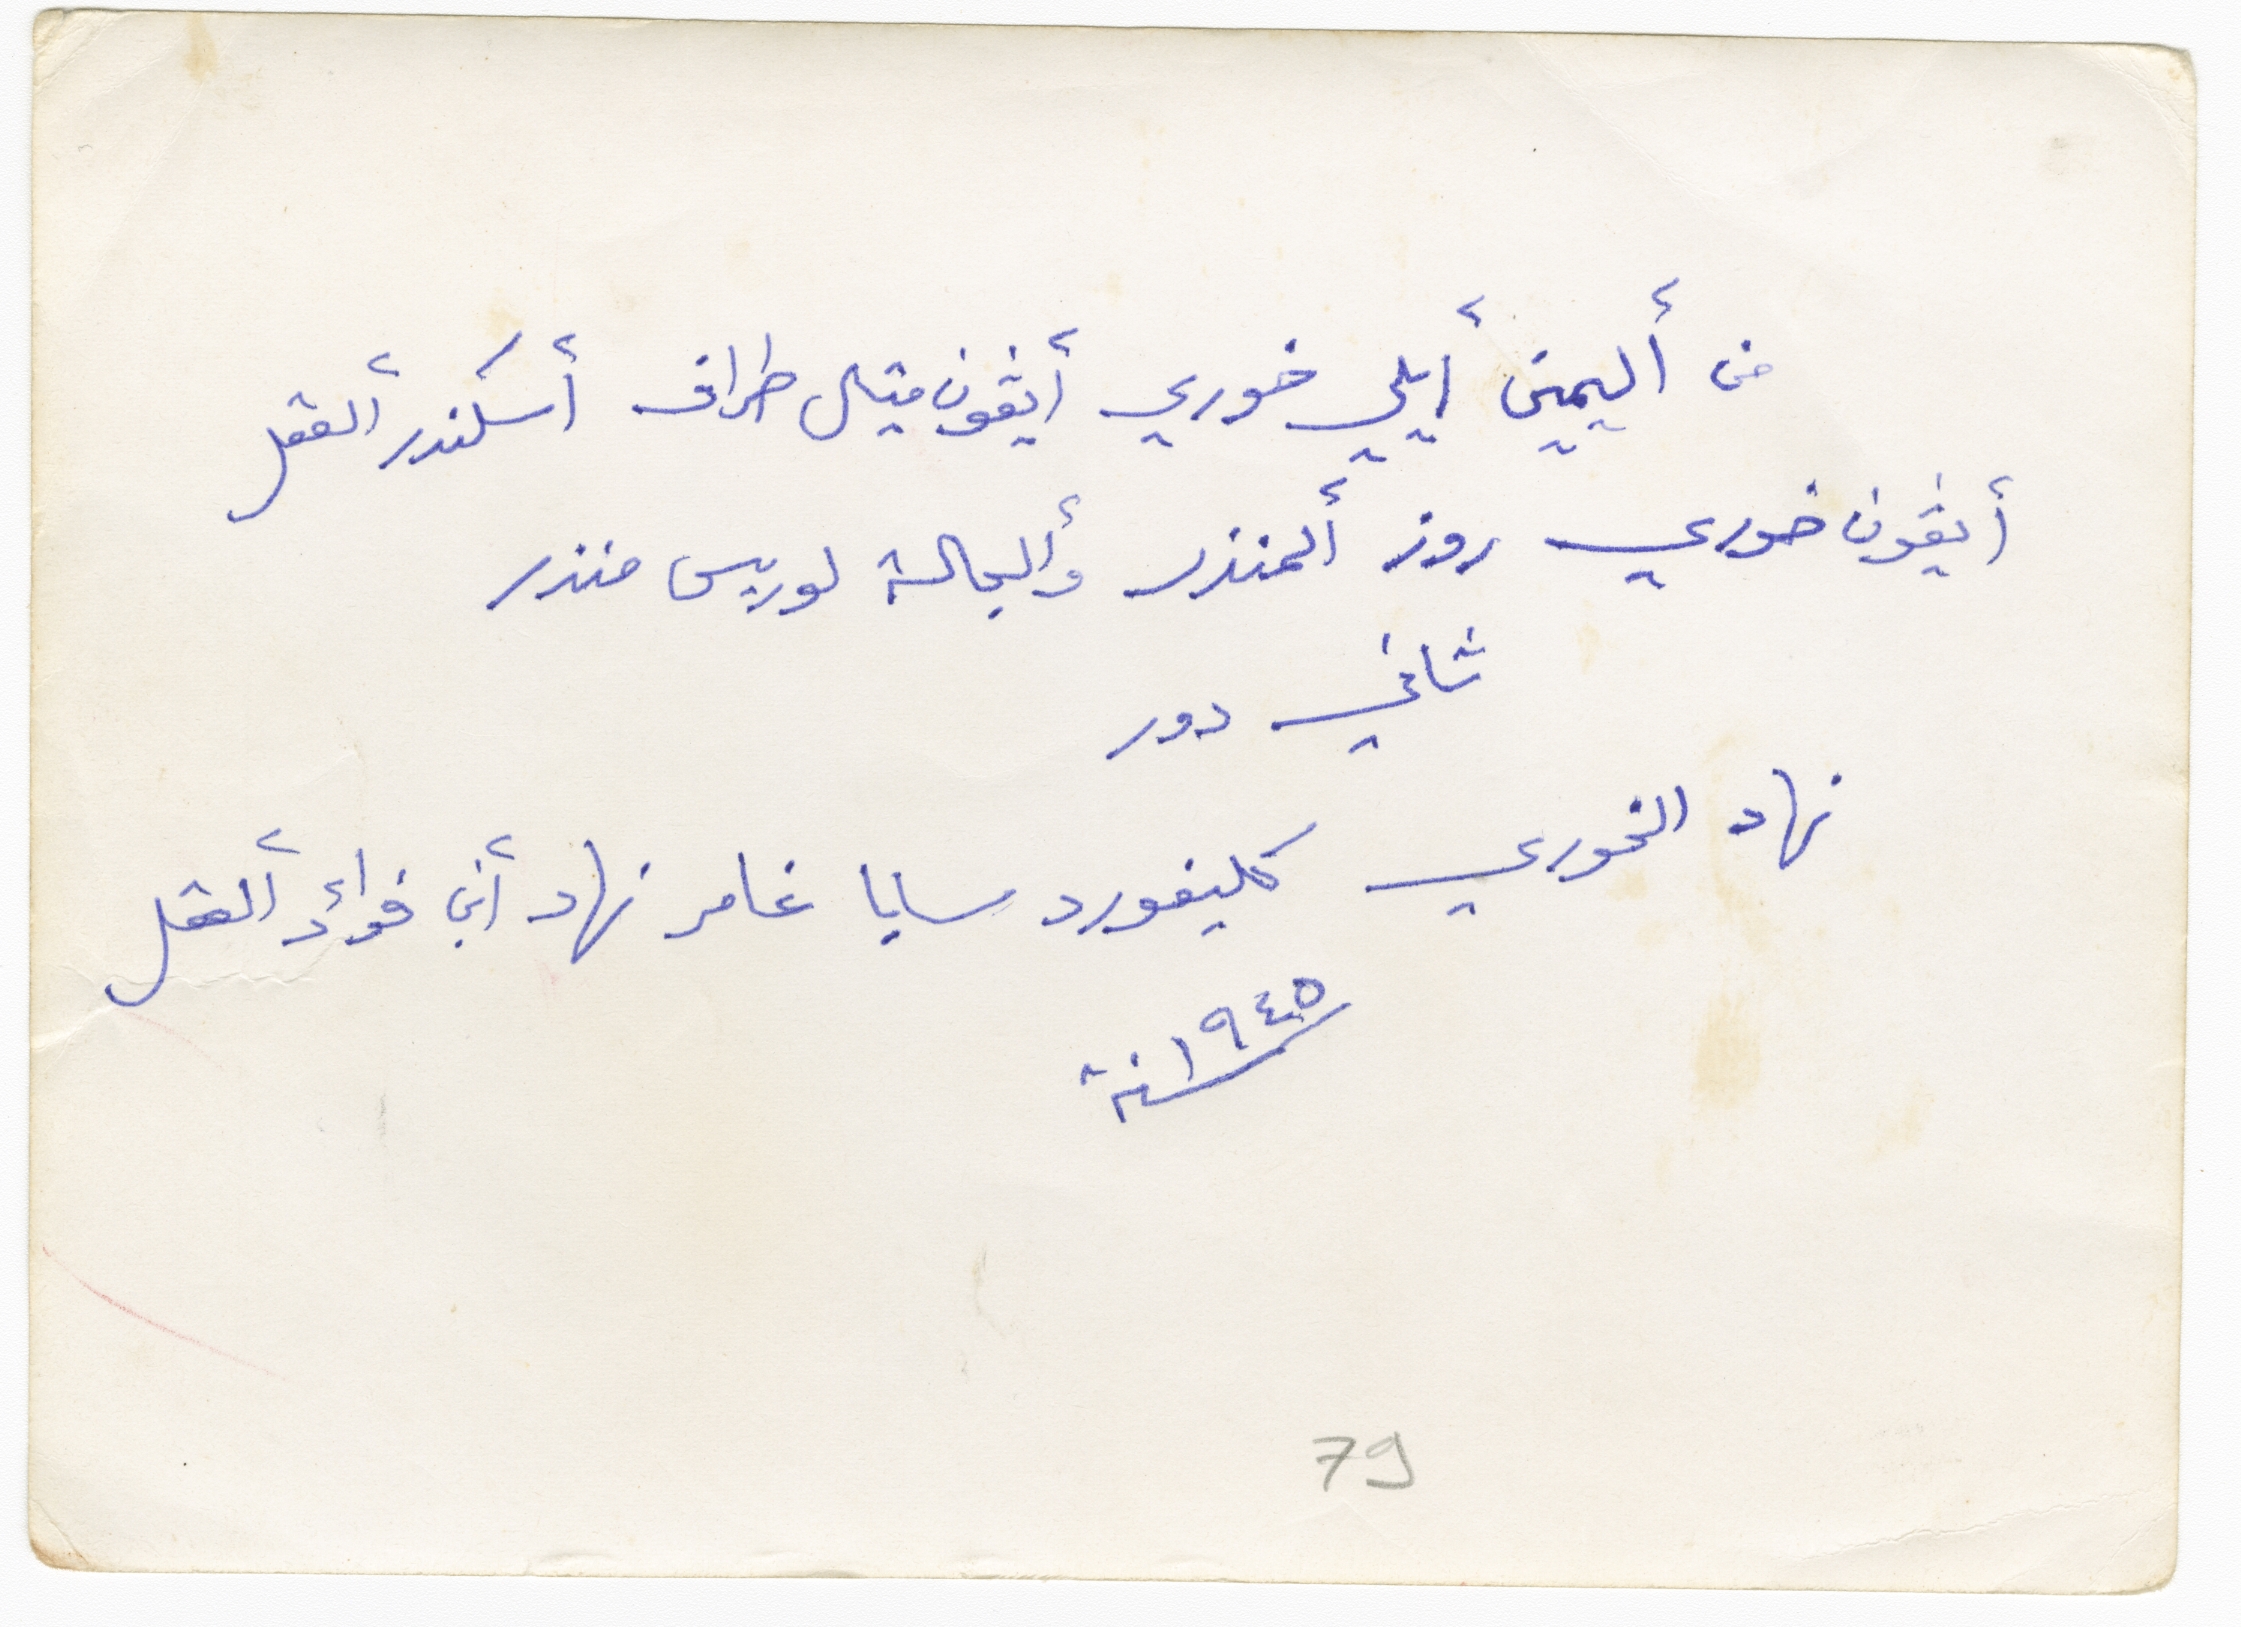 من أليمين أيلي خوري أيڤون متال طراف أسكندر ألقفل
أيڤون خوري روز ألمنذر وألجالسة لوريس منذر
ثاني دور
نهاد الخوري كليفورد سابا غامر نهاد أبي فوائد ألقفل
سنة ١٩٤٥
79